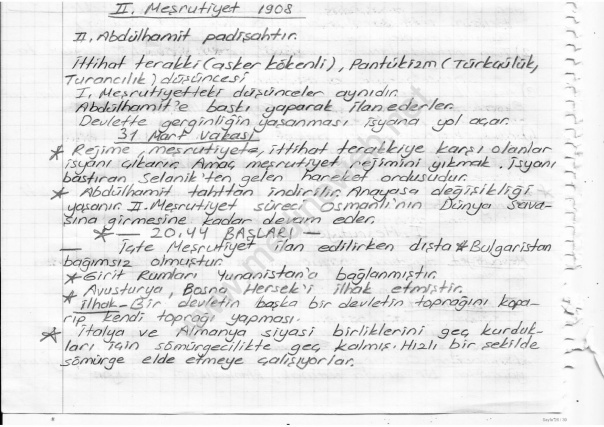 II. Meşrutiyet 1908
II. Abdülhamit padişahtır.
İttihat terakki (asker kökenli), Pantürkizm (Türkçülük,
Turancılık) düşüncesi
I. Meşrutiyetteki düşünceler aynıdır.
Abdülhamit'e baskı yaparak ilan ederler.
Devlette gerginliğin yaşanması isyana yol açar.
31 Mart Vakası
* Rejime, meşrutiyete, ittihat terakkiye karşı olanlar
isyanı çıkarır. Amaç meşrutiyet rejimini yıkmak. İsyanı
bastıran Selanik'ten gelen hareket ordusudur.
* Abdülhamit tahttan indirilir. Anayasa değişikliği
yaşanır. II. Meşrutiyet süreci Osmanlı'nın Dünya sava-
şına girmesine kadar devam eder.
* — 20.yy BAŞLARI —
— İçte Meşrutiyet ilan edilirken dışta * Bulgaristan
bağımsız olmuştur.
* Girit Rumları Yunanistan'a bağlanmıştır.
* Avusturya, Bosna Hersek'i ilhak etmiştir.
İlhak - Bir devletin başka bir devletin toprağını kopa-
rıp kendi toprağı yapması.
* İtalya ve Almanya siyasi birliklerini geç kurduk-
ları için sömürgecilikte geç kalmış. Hızlı bir şekilde
sömürge elde etmeye çalışıyorlar.